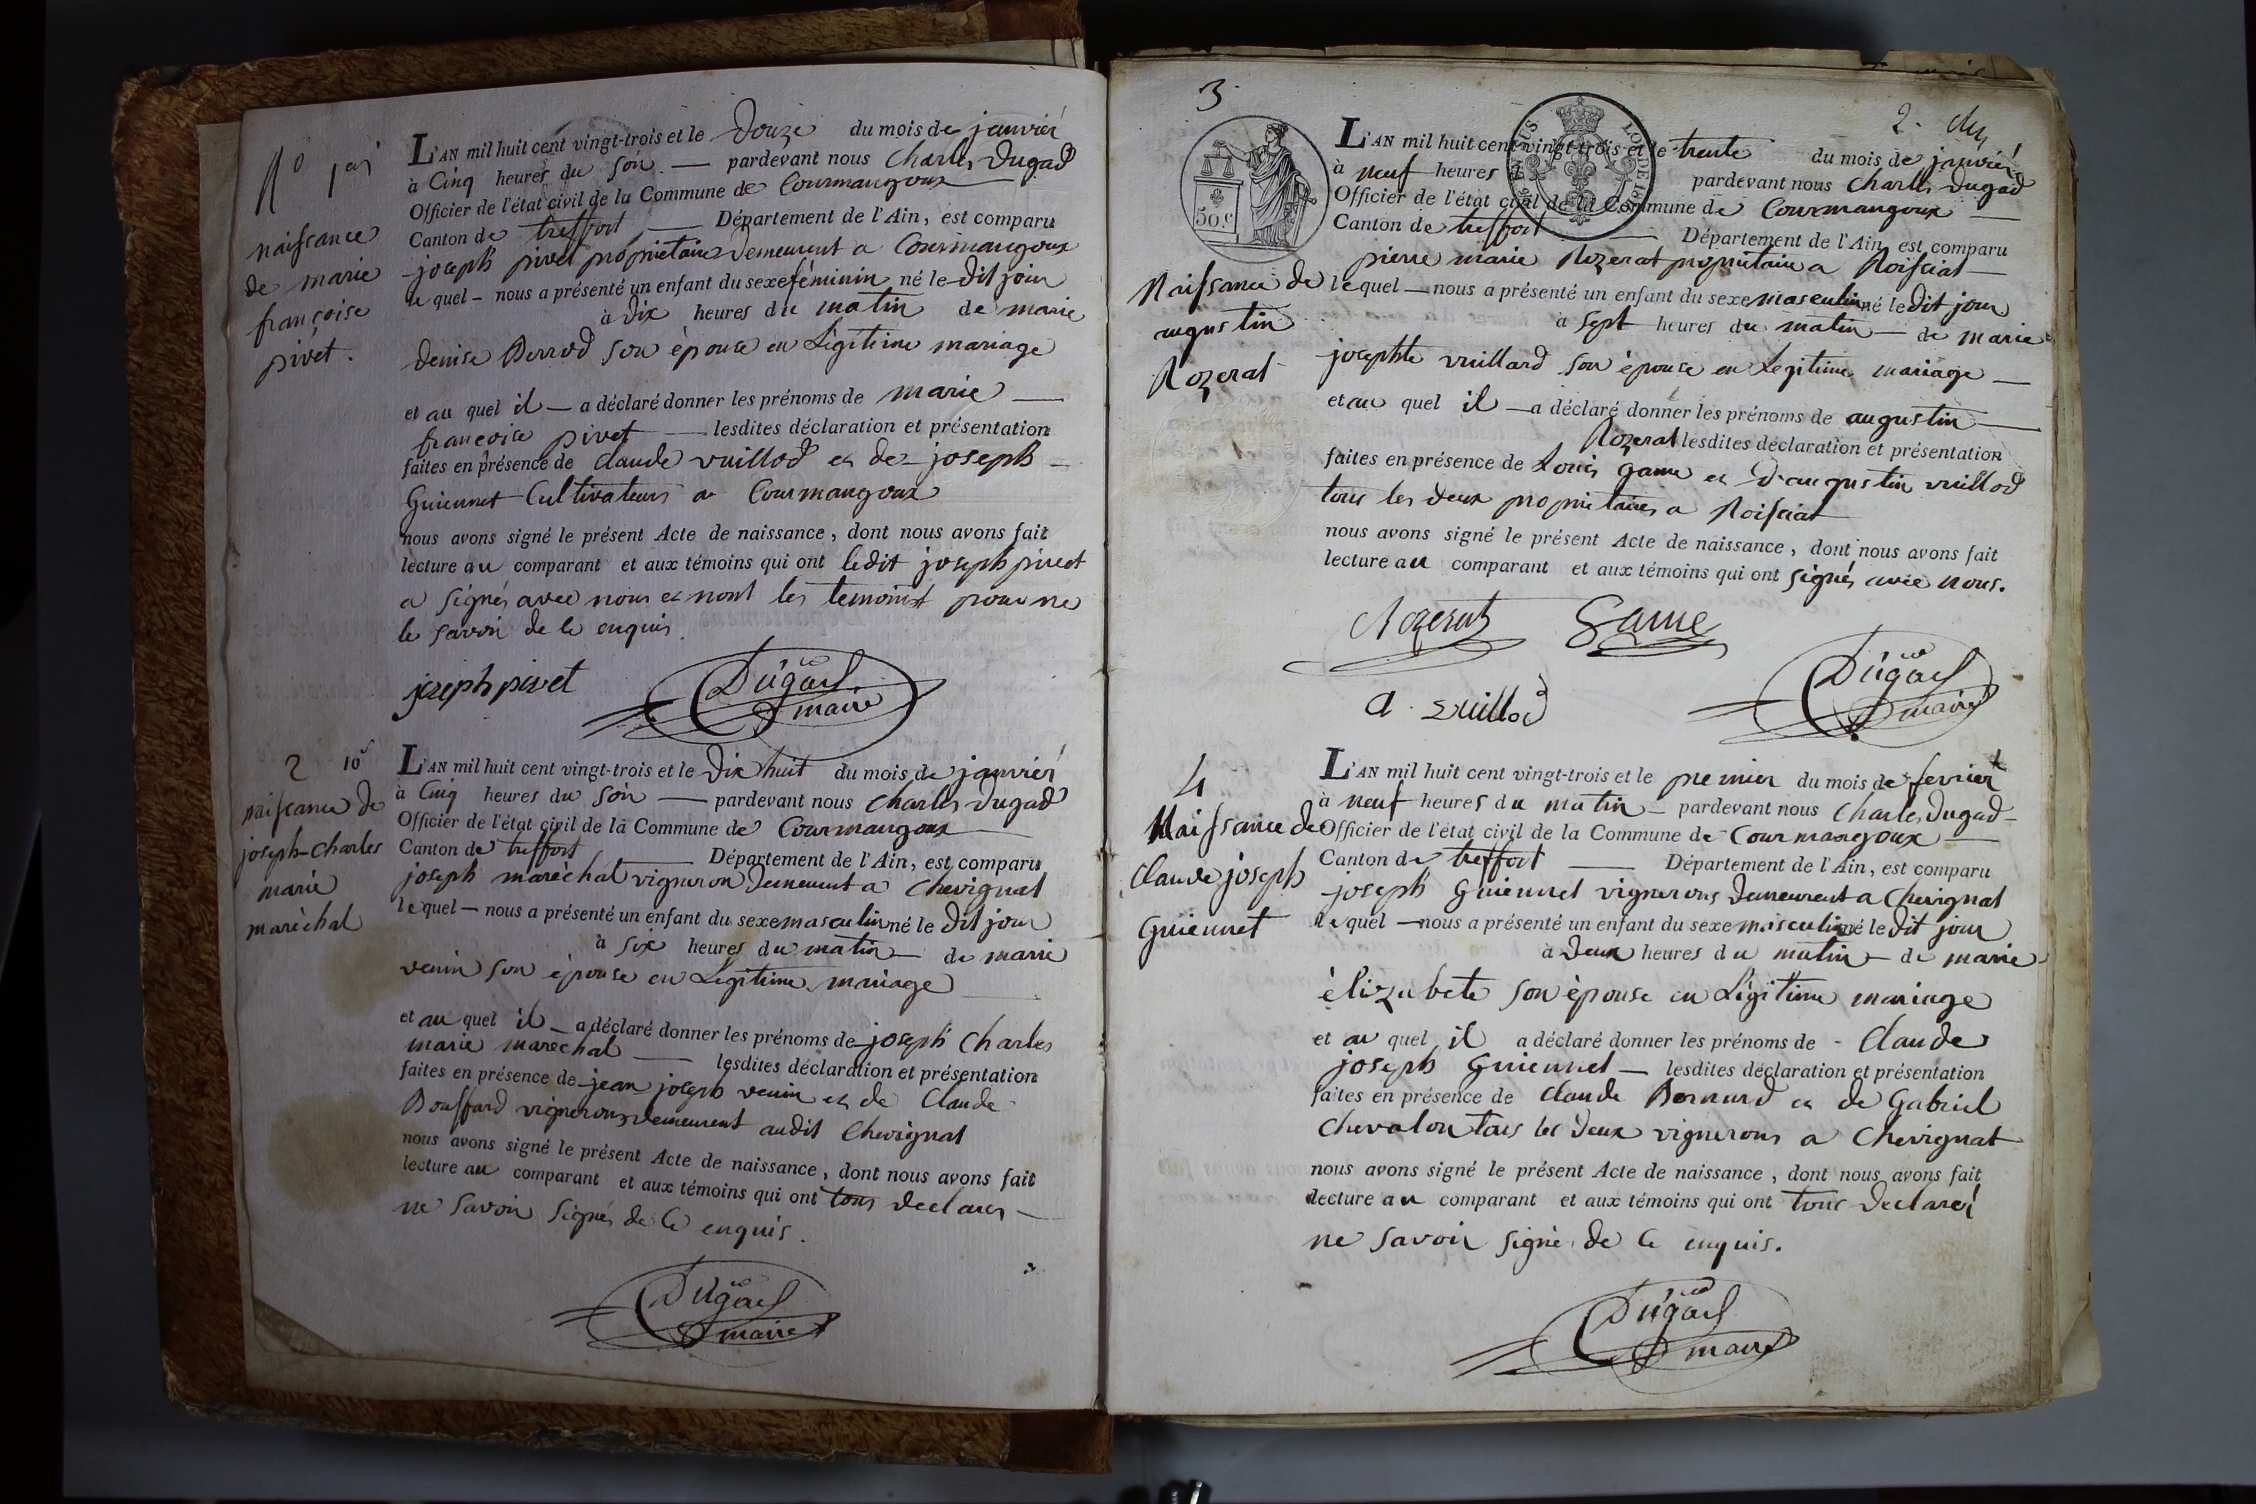 N.º 1er
naissance
de marie
françoise
pivet.
L'AN mil huit cent vingt-trois et le Douze du mois de janvier
à Cinq heures du soir — pardevant nous Charles Dugad
Officier de l'état civil de la Commune de Courmangoux
Canton de treffort — Département de l'Ain, est comparu
joseph pivet propriétaire demeurent a Courmangoux
le quel — nous a présenté un enfant du sexe féminin né le dit jour
à dix heures du matin de marie
denise Berrod son épouse en Légitime mariage
et au quel il — a déclaré donner les prénoms de marie —
françoise pivet — lesdites déclaration et présentation
faites en présence de claude vuillod et de joseph —
Guiennet Cultivateurs a Courmangoux
nous avons signé le présent Acte de naissance, dont nous avons fait
lecture au comparant et aux témoins qui ont ledit joseph pivet
a signés avec nous et nont les temoins pour ne
le savoir de ce enquis.
joseph pivet
Dugad
maire
2
naissance de
joseph-Charles
marie
maréchal
L'AN mil huit cent vingt-trois et le Dix huit du mois de janvier
à Cinq heures du soir — pardevant nous Charles Dugad
Officier de l'état civil de la Commune de Courmangoux
Canton de treffort — Département de l'Ain, est comparu
joseph maréchal vigneron demeurent a Chevignat
le quel — nous a présenté un enfant du sexe masculin né le dit jour
à six heures du matin — de marie
venin son épouse en Légitime mariage
et au quel il — a déclaré donner les prénoms de joseph Charles
marie marechal — lesdites déclaration et présentation
faites en présence de jean joseph venin et de Claude
Bouffard vignerons demeurent audit Chevignat
nous avons signé le présent Acte de naissance, dont nous avons fait
lecture au comparant et aux témoins qui ont tous declarer —
ne savoir signer de ce enquis.
Dugad
maire
3
2.
50.c
Naissance de
augustin
Nozerat
L'AN mil huit cent vingt-trois et le trente du mois de janvier
à neuf heures pardevant nous Charles Dugad
Officier de l'état civil de la Commune de Courmangoux —
Canton de treffort — Département de l'Ain, est comparu
pierre marie Nozerat propriétaire a Roissiat —
le quel — nous a présenté un enfant du sexe masculin né le dit jour
à sept heures du matin — de marie
josephte vuillard son épouse en Légitime mariage —
et au quel il — a déclaré donner les prénoms de augustin —
Nozerat lesdites déclaration et présentation
faites en présence de Louis Game et D'augustin vuillod
tous les deux propriétaires a Roissiat
nous avons signé le présent Acte de naissance, dont nous avons fait
lecture au comparant et aux témoins qui ont signés avec nous.
Nozerat Game
a vuillod
Dugad
maire
4
Naissance de
Claude joseph
Guiennet
L'AN mil huit cent vingt-trois et le premier du mois de fevrier
à neuf heures du matin — pardevant nous Charles Dugad —
Officier de l'état civil de la Commune de Courmangoux —
Canton de treffort — Département de l'Ain, est comparu
joseph Guiennet vignerons demeurent a Chevignat
le quel — nous a présenté un enfant du sexe masculin né le dit jour
à deux heures du matin — de marie
élizabete son épouse en Légitime mariage
et au quel il a déclaré donner les prénoms de - Claude
joseph Guiennet — lesdites déclaration et présentation
faites en présence de claude Bernard et de Gabriel
Chevalon tous les deux vignerons a Chevignat
nous avons signé le présent Acte de naissance, dont nous avons fait
lecture au comparant et aux témoins qui ont tous declarer
ne savoir signé de ce enquis.
Dugad
maire